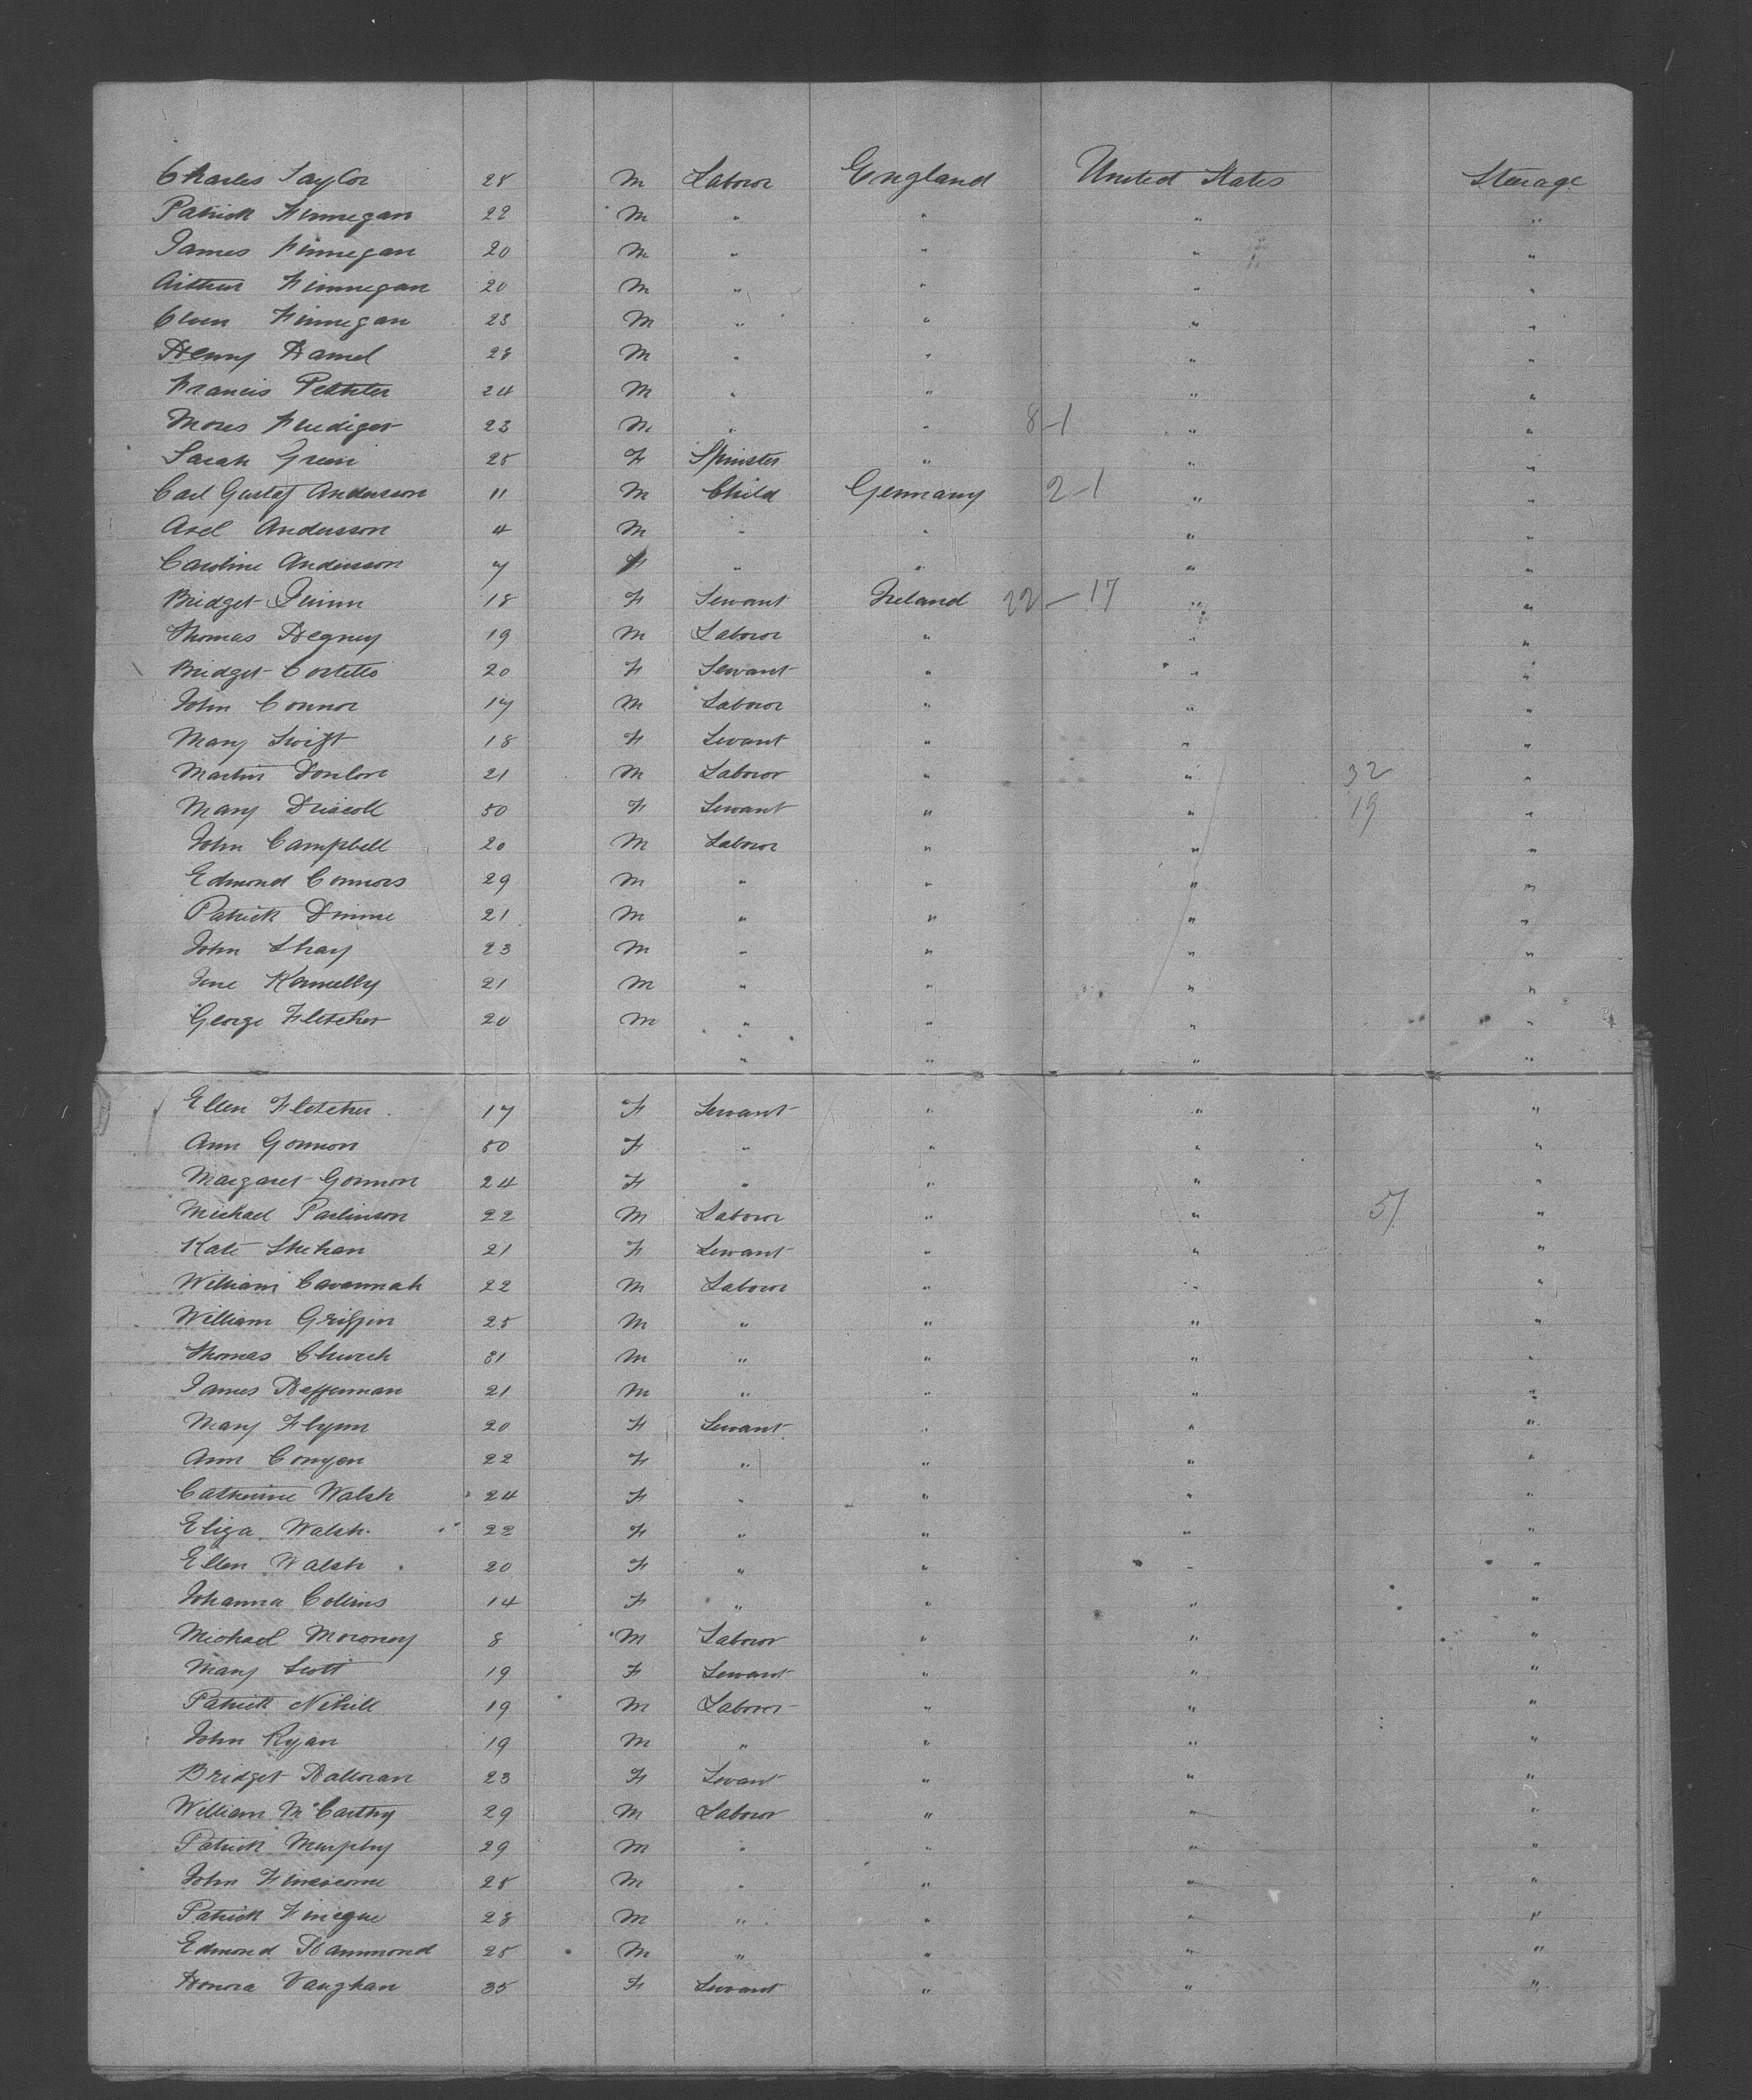 Charles Taylor 28 M Labour England United States Steerage
Patrick Finnegan 22 M " " " "
James Finnegan 20 M " " " "
Arthur Finnegan 20 M " " " "
Owen Finnegan 23 M " " " "
Henry 28 M " " " "
Francis 24 M " " " "
Moses 23 M " " 8-1 " "
Sarah Green 25 F Spinster " " "
Carl Gustaf Andersson 11 M Child Germany 2-1 " "
Axel Andersson 4 M " " " "
Caroline Andersson 7 F " " " "
Bridget Quinn 18 F Servant Ireland 22-17 " "
Thomas Hegney 19 M Labour " " "
Bridget 20 F Servant " " "
John Connor 17 M Labour " " "
Mary Swift 18 F Servant " " "
Martin Donlon 21 M Labour " " 32 "
Mary Driscoll 50 F Servant " " 19 "
John Campbell 20 M Labour " " "
Edmond Connors 29 M " " " "
Patrick 21 M " " " "
John Shay 23 M " " " "
21 M " " " "
George Fletcher 20 M " " " "
" " " "
Ellen Fletcher 17 F Servant " " "
Ann Gormon 50 F " " " "
Margaret Gormon 24 F " " " "
Michael Parlinson 22 M Labour " " 51 "
Kate Shehan 21 F Servant " " "
William Cavannah 22 M Labour " " "
William Griffin 25 M " " " "
Thomas Church 31 M " " " "
James Heffernan 21 M " " " "
Mary Flynn 20 F Servant " " "
Ann 22 F " " " "
Catherine Walsh 24 F " " " "
Eliza Walsh 22 F " " " "
Ellen Walsh 20 F " " " "
Johanna Collins 14 F " " " "
Michael Moroney 8 M Labour " " "
Mary Scott 19 F Servant " " "
Patrick Nihill 19 M Labour " " "
John Ryan 19 M " " " "
Bridget Halloran 23 F Servant " " "
William McCarthy 29 M Labour " " "
Patrick Murphy 29 M " " " "
John 25 M " " " "
Patrick 28 M " " " "
Edmond Hammond 25 M " " " "
Honora Vaughan 35 F Servant " " "